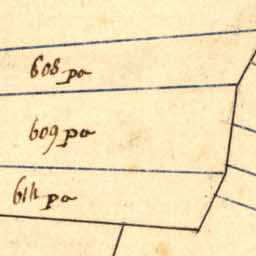 608 pa
609 pa
611 pa